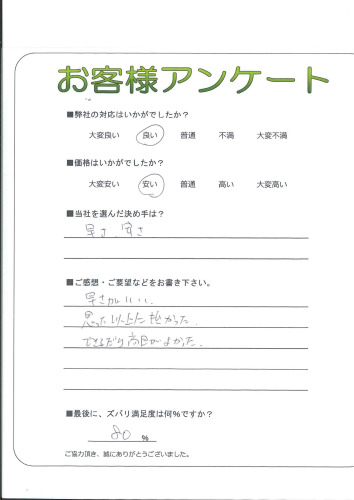 お客様アンケート
■弊社の対応はいかがでしたか?
大変良い 良い 普通 不満 大変不満
■価格はいかがでしたか?
大変安い 安い 普通 高い 大変高い
■当社を選んだ決め手は?
早さ、安さ
■ご感想・ご要望などをお書き下さい。
早さがいい、
思った以上に
できるだけ がよかった。
■最後に、ズバリ満足度は何%ですか?
80 %
ご協力頂き、誠にありがとうございました。